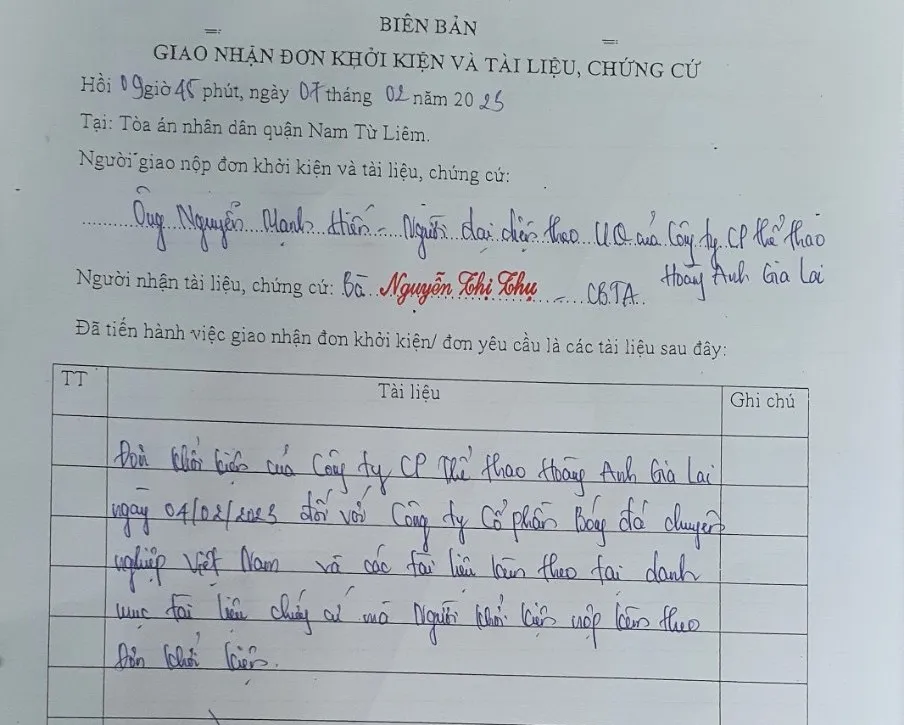 BIÊN BẢN
GIAO NHẬN ĐƠN KHỞI KIỆN VÀ TÀI LIỆU, CHỨNG CỨ
Hồi 09 giờ 45 phút, ngày 07 tháng 02 năm 2023
Tại: Tòa án nhân dân quận Nam Từ Liêm.
Người giao nộp đơn khởi kiện và tài liệu, chứng cứ:
Ông Nguyễn Mạnh Hiến - Người đại diện theo UQ của Công ty CP thể thao
Hoàng Anh Gia Lai
Người nhận tài liệu, chứng cứ: Bà Nguyễn Thị Thụ - CBTA.
Đã tiến hành việc giao nhận đơn khởi kiện/ đơn yêu cầu là các tài liệu sau đây:
TT Tài liệu Ghi chú
Đơn khởi kiện của Công ty CP Thể thao Hoàng Anh Gia Lai
ngày 04/02/2023 đối với Công ty Cổ phần Bóng đá chuyên
nghiệp Việt Nam và các tài liệu kèm theo tại danh
mục tài liệu chứng cứ mà Người khởi kiện nộp kèm theo
Đơn khởi kiện.